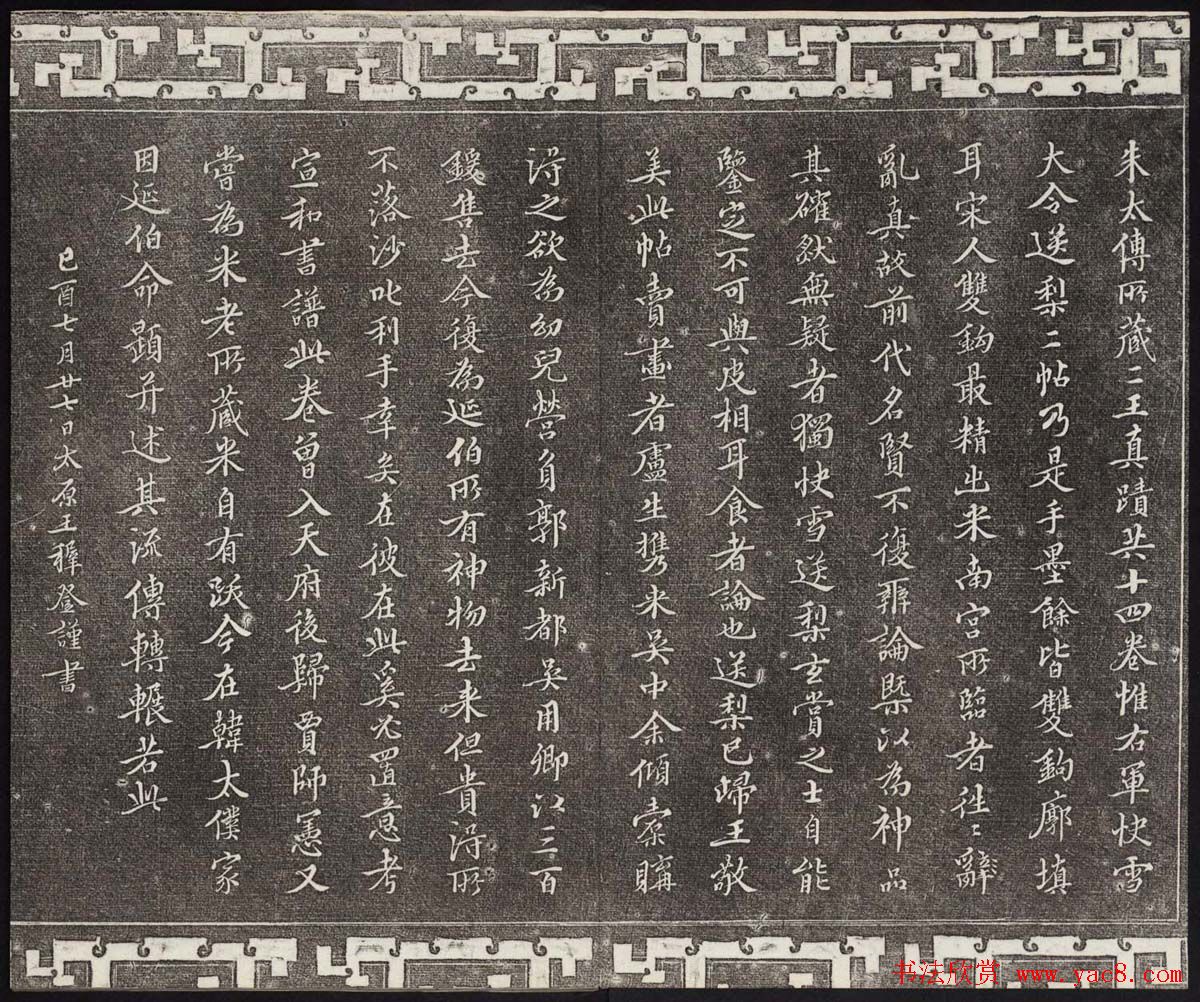 朱太傅所蔵二王真蹟共十四卷惟右軍快雪
大令送梨二帖乃是手墨餘皆雙鈎廓填
耳宋人雙鈎最精出米南宮所臨者往〻
亂真故前代名賢不復辨論槩以為神品
其確然無疑者獨快雪送梨玄賞之士自能
鑒定不可與皮相耳食者論也送梨已歸王敬
美此帖賣畫者盧生攜來吴中余傾橐購
得之欲為幼兒營負郭新都吳用卿以三百
鍰售去今復為延伯所有神物去来但貴得所
不落沙叱利手幸矣在彼在此奚必置意考
宣和書譜此卷曾入天府後歸賈師憲又
嘗為米老所蔵米自有跋今在韓太僕家
因延伯命題并述其流傳轉輾若此
已酉七月廿七日太原王穉登謹書
书法欣赏 www.yac8.com